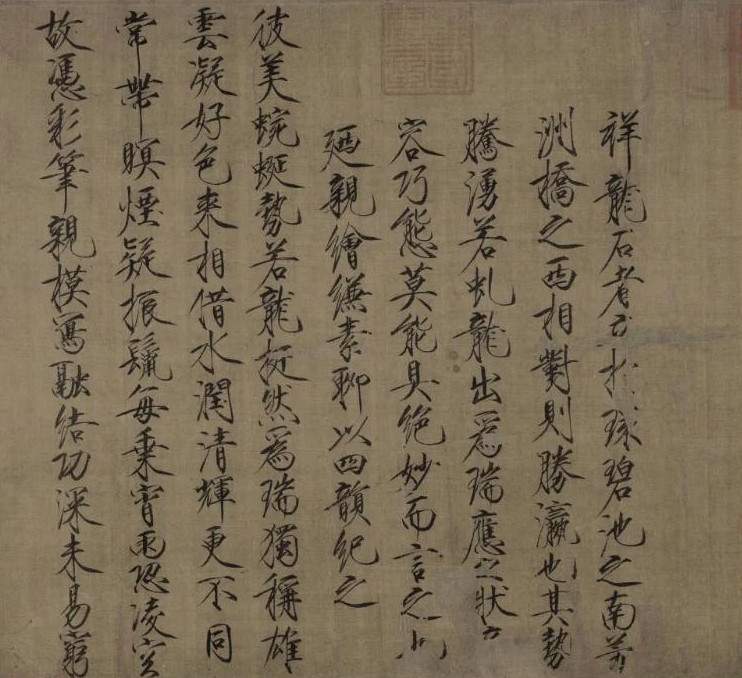 祥龍石者立於環碧池之南芳
洲橋之西相對則勝瀛也其勢
騰湧若虯龍出為瑞應之狀奇
容巧態莫能具絕妙而言之也
廼親繪縑素聊以四韻紀之
彼美蜿蜒勢若龍挺然為瑞獨稱雄
雲凝好色來相借水潤清輝更不同
常帶暝煙疑振鬣每乘宵雨恐凌空
故憑彩筆親模寫融結功深未易窮